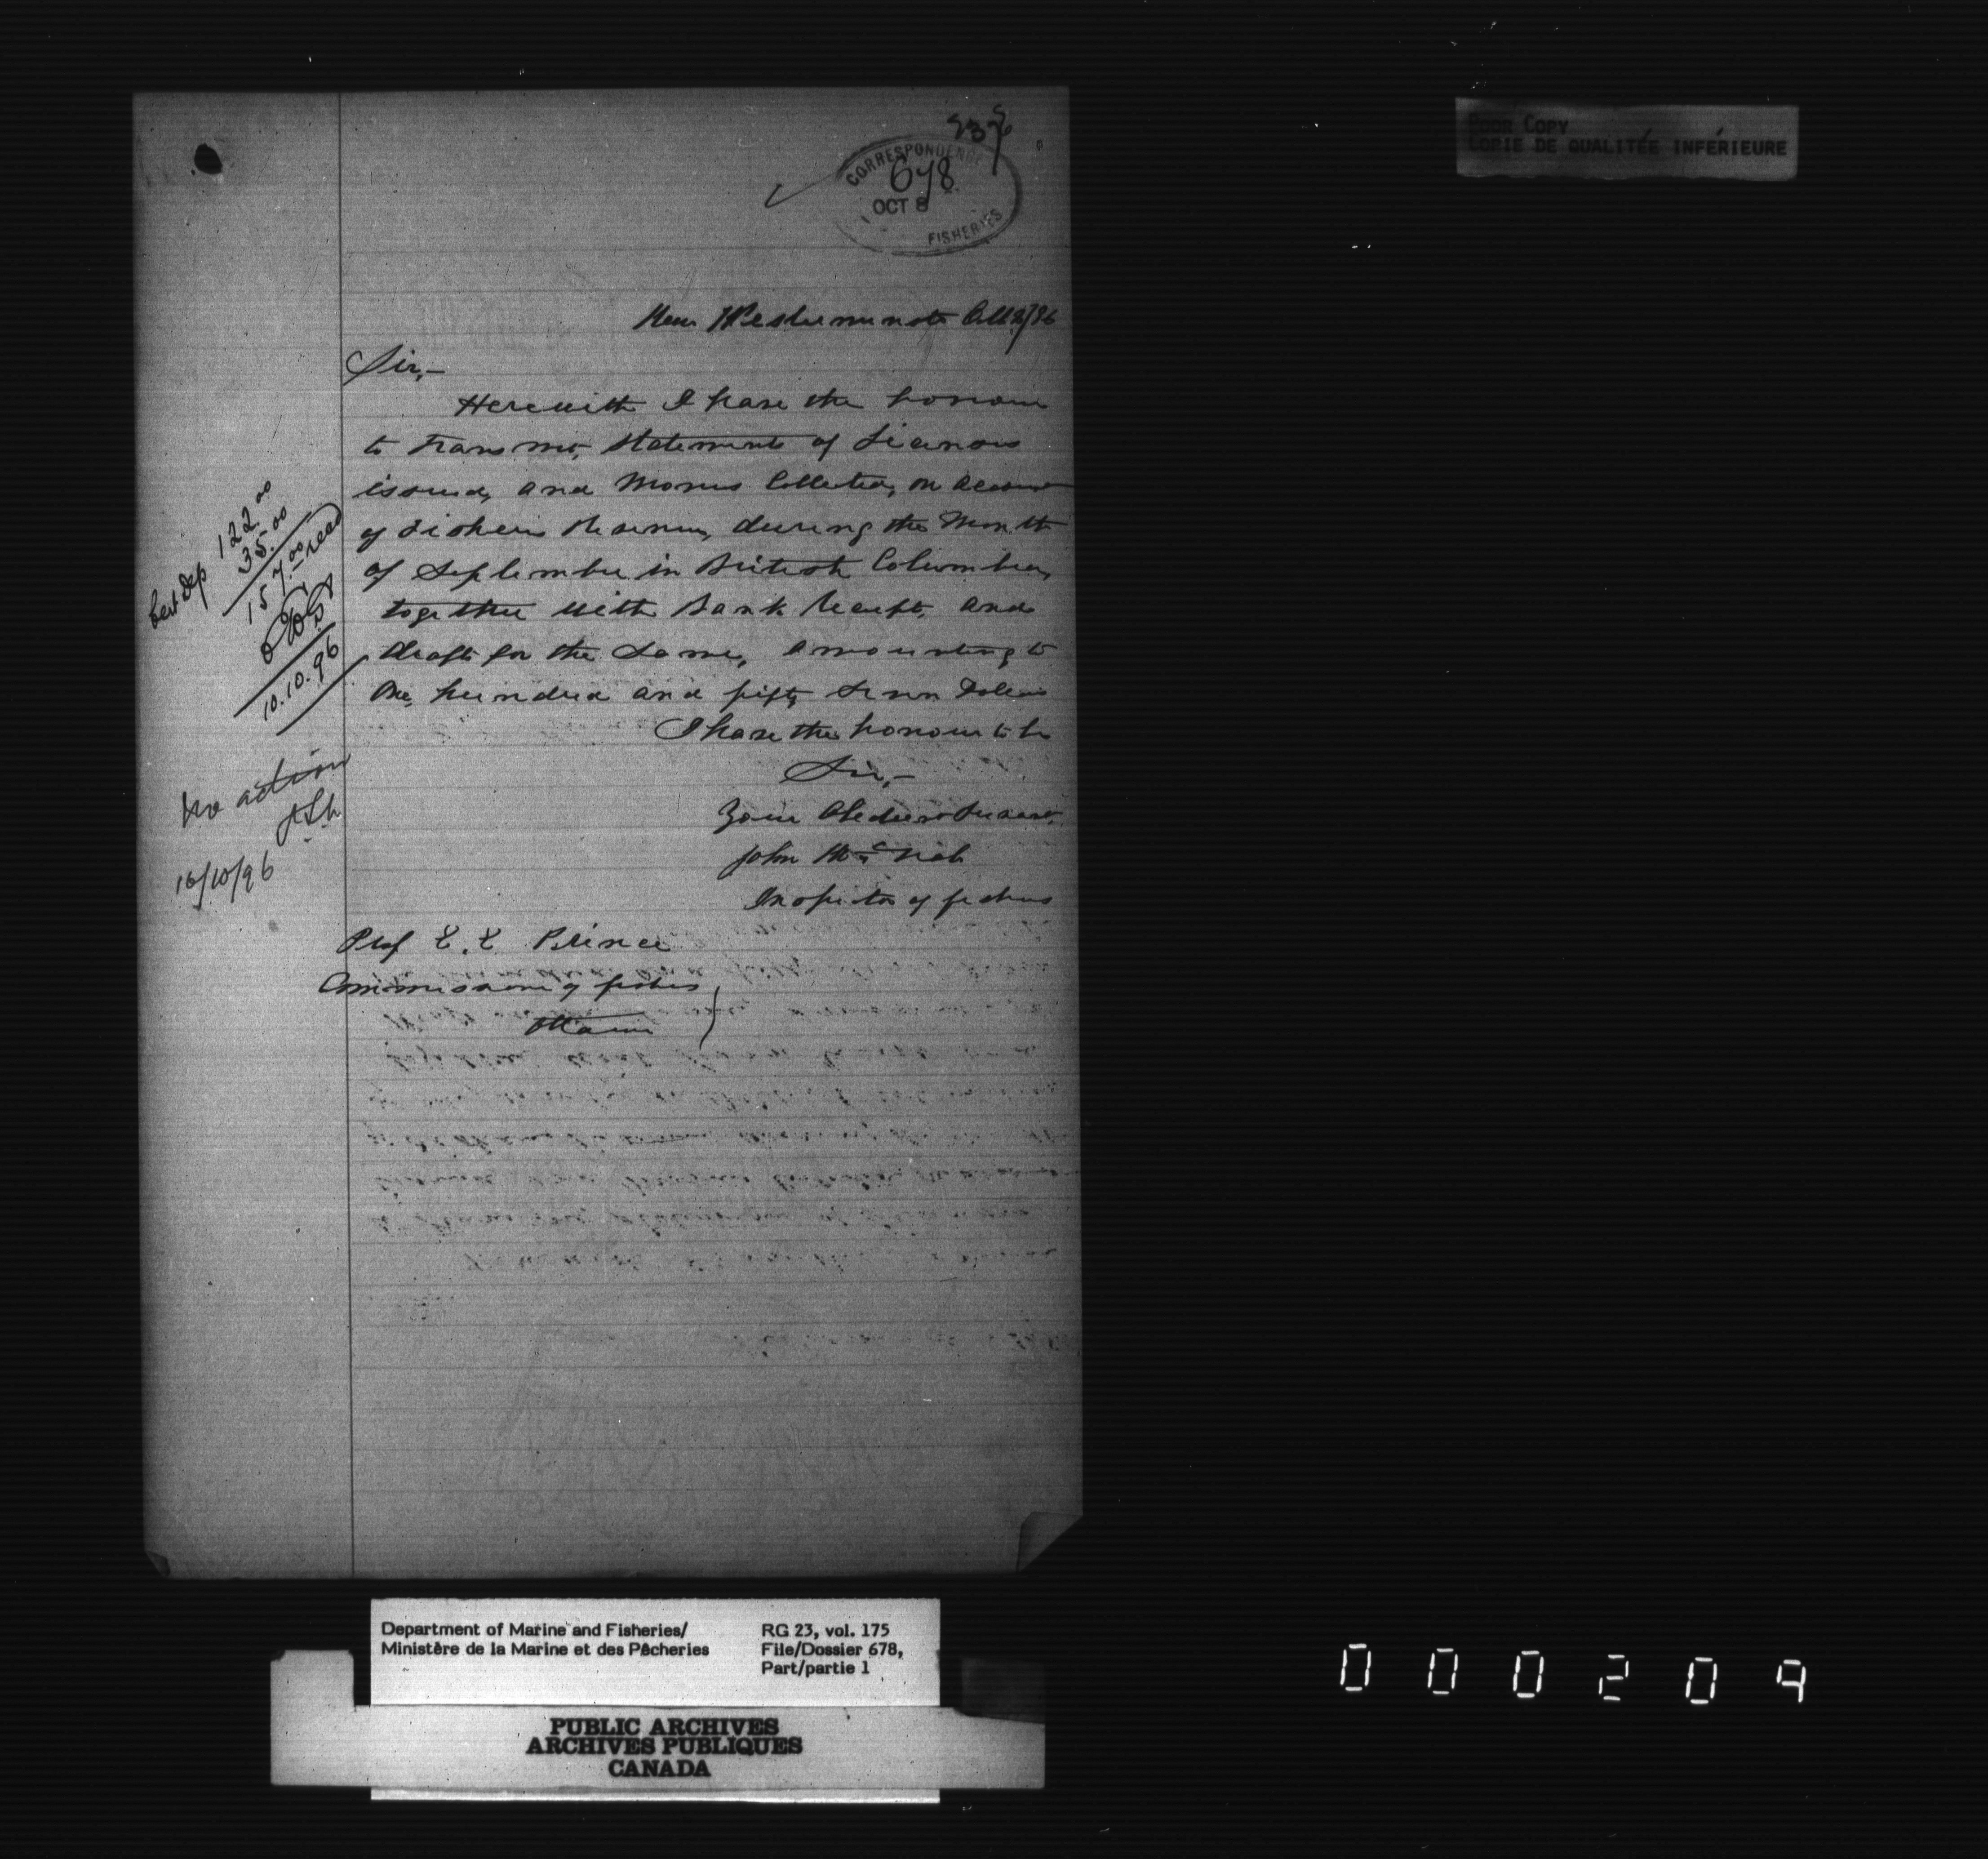 POOR COPY
COPIE DE QUALITÉE INFÉRIEURE
CORRESPONDENCE
678
OCT 8
FISHERIES
New Westminster Oct 2/96
Sir,-
Herewith I have the honour
to transmit, Statements of Licenses
issued, and Monies Collected, on account
of Fisheries Revenue, during the Month
of September in British Columbia,
together with Bank Receipt, and
draft for the Same, amounting to
One, hundred and fifty Seven Dollars
I have the honour to be
Sir,-
Your Obedient Servant.
John McNab
Inspector of fisheries
Prof E. E Prince
Commissioner of fisheries
Ottawa
Cert Dep 122.00
35.00
157.00 recd
10.10.96
No action
16/10/96
Department of Marine and Fisheries/
Ministère de la Marine et des Pêcheries
RG 23, vol. 175
File/Dossier 678,
Part/partie 1
PUBLIC ARCHIVES
ARCHIVES PUBLIQUES
CANADA
000209